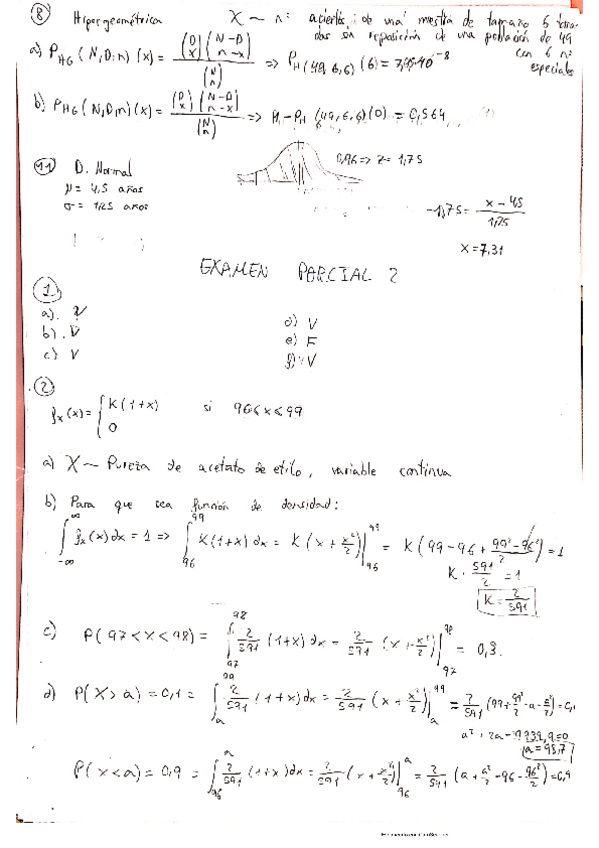 8 Hipergeométrica X ~ nº aciertos de una muestra de tamaño 6 tomadas sin reposición de una población de 49 con 6 nº especiales
a) P_HG (N,D,n)(x) = (D x)(N-D n-x) / (N n) => P_H(49,6,6)(6) =
b) P_HG (N,D,n)(x) = (D x)(N-D n-x) / (N n) => (49,6,6)(0) = 0,564
11 D. Normal
0,96 => z = 1,75
μ = 4,5 años
σ = 1,25 años
-1,75 = (x - 4,5) / 1,25
x = 7,31
EXAMEN PARCIAL 2
1
a)
b) V
c) V
d) V
e) F
f) V
2
f_x(x) = { K(1+x) si 96<x<99
0
a) X ~ Pureza de acetato de etilo, variable continua
b) Para que sea función de densidad:
∫_{-∞}^{∞} f_x(x)dx = 1 => ∫_{96}^{99} K(1+x)dx = K(x + x²/2)|_{96}^{99} = K(99-96 + (99²-96²)/2) = 1
K · 591/2 = 1
K = 2/591
c) P(97<x<98) = ∫_{97}^{98} 2/591 (1+x)dx = 2/591 (x + x²/2)|_{97}^{98} = 0,3.
d) P(X>a) = 0,1 = ∫_{a}^{99} 2/591 (1+x)dx = 2/591 (x + x²/2)|_{a}^{99} = 2/591 (99 + 99²/2 - a - a²/2) = 0,1
a² + 2a - 9839,9 = 0
a = 98,7
P(x<a) = 0,9 = ∫_{96}^{a} 2/591 (1+x)dx = 2/591 (x + x²/2)|_{96}^{a} = 2/591 (a + a²/2 - 96 - 96²/2) = 0,9